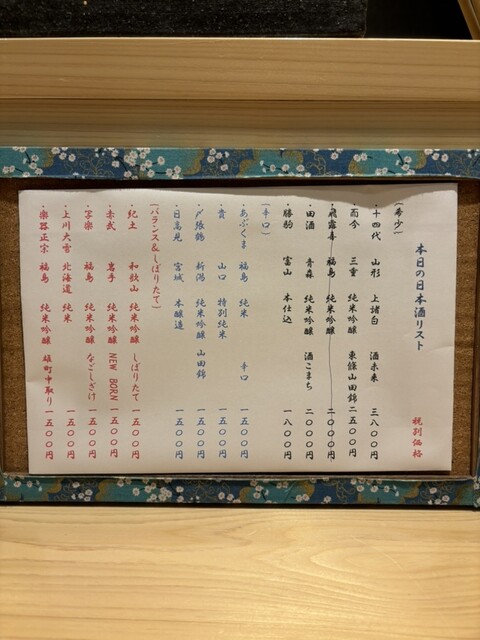 本日の日本酒リスト
税別価格
(希少)
・十四代 山形 上諸白 酒未来 三八〇〇円
・而今 三重 純米吟醸 東條山田錦 二五〇〇円
・飛露喜 福島 純米吟醸 二〇〇〇円
・田酒 青森 純米吟醸 酒こまち 二〇〇〇円
・勝駒 富山 本仕込 一八〇〇円
(辛口)
・あぶくま 福島 純米 辛口 一五〇〇円
・貴 山口 特別純米 一五〇〇円
・〆張鶴 新潟 純米吟醸 山田錦 一五〇〇円
・日高見 宮城 本醸造 一五〇〇円
(バランス&しぼりたて)
・紀土 和歌山 純米吟醸 しぼりたて 一五〇〇円
・赤武 岩手 純米吟醸 NEW BORN 一五〇〇円
・写楽 福島 純米吟醸 なごしざけ 一五〇〇円
・上川大雪 北海道 純米 一五〇〇円
・楽器正宗 福島 純米吟醸 雄町中取り 一五〇〇円